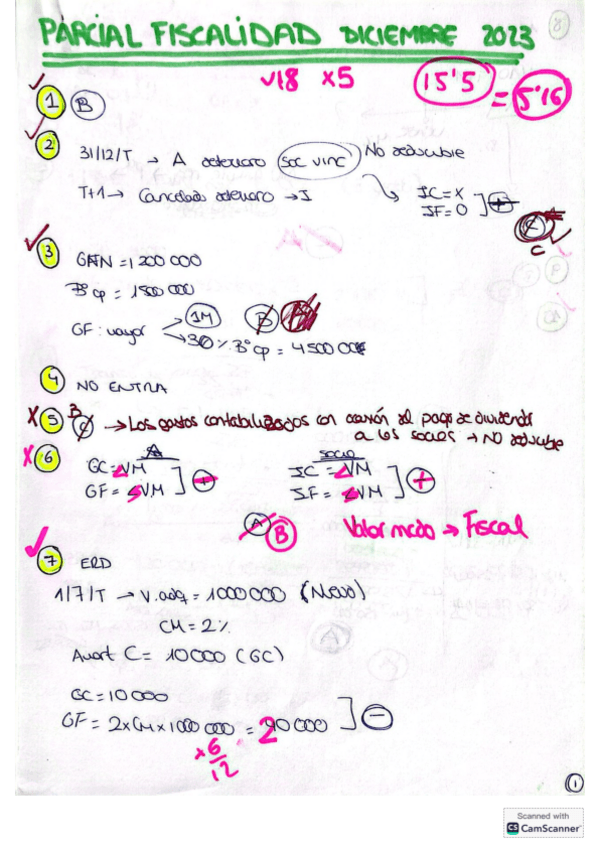 PARCIAL FISCALIDAD DICIEMBRE 2023
8
✓18 x5 15'5 = 5'16
1 B
2
31/12/T → A deterioro (Soc vinc) No deducible
T+1 → Cancelado deterioro → I
IC = X
IF = 0
C
3
GFN = 1 200 000
Bº op = 1500 000
GF: mayor → 1M
→ 30% Bº op = 4500 00€
B
4 NO ENTRA
5 B → Los gastos contabilizados con ocasión al pago de dividendos
a los socios → NO deducible
6 A socio
GC = VM IC = VM
GF = VM IF = VM
+ +
A B Valor mcdo → Fiscal
7 ERD
1/7/T → V.adq = 1000 000 (Nuevo)
CM = 2%
Amort C = 10 000 (GC)
GC = 10 000
GF = 2xCMx1000 000 = 20 000
−
x 6/12
1
Scanned with
CS CamScanner